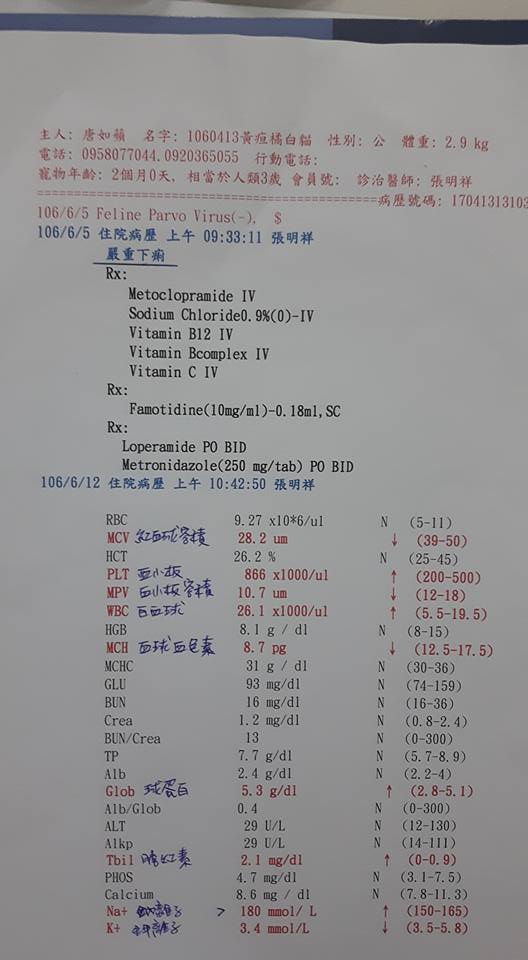 主人: 唐如蘋 名字: 1060413黃疸橘白貓 性別: 公 體重: 2.9 kg
電話: 0958077044.0920365055 行動電話:
寵物年齡: 2個月0天, 相當於人類3歲 會員號: 診治醫師: 張明祥
==============================================病歷號碼: 17041313103
106/6/5 Feline Parvo Virus(-), $
106/6/5 住院病歷 上午 09:33:11 張明祥
嚴重下痢
Rx:
Metoclopramide IV
Sodium Chloride0.9%(0)-IV
Vitamin B12 IV
Vitamin Bcomplex IV
Vitamin C IV
Rx:
Famotidine(10mg/ml)-0.18ml,SC
Rx:
Loperamide PO BID
Metronidazole(250 mg/tab) PO BID
106/6/12 住院病歷 上午 10:42:50 張明祥
RBC 9.27 x10*6/ul N (5-11)
MCV 紅血球容積 28.2 um ↓ (39-50)
HCT 26.2 % N (25-45)
PLT 血小板 866 x1000/ul ↑ (200-500)
MPV 血小板容積 10.7 um ↓ (12-18)
WBC 白血球 26.1 x1000/ul ↑ (5.5-19.5)
HGB 8.1 g / dl N (8-15)
MCH 血球血色素 8.7 pg ↓ (12.5-17.5)
MCHC 31 g / dl N (30-36)
GLU 93 mg/dl N (74-159)
BUN 16 mg/dl N (16-36)
Crea 1.2 mg/dl N (0.8-2.4)
BUN/Crea 13 N (0-300)
TP 7.7 g/dl N (5.7-8.9)
Alb 2.4 g/dl N (2.2-4)
Glob 球蛋白 5.3 g/dl ↑ (2.8-5.1)
Alb/Glob 0.4 N (0-300)
ALT 29 U/L N (12-130)
Alkp 29 U/L N (14-111)
Tbil 膽紅素 2.1 mg/dl ↑ (0-0.9)
PHOS 4.7 mg/dl N (3.1-7.5)
Calcium 8.6 mg / dl N (7.8-11.3)
Na+ 鈉離子 > 180 mmol/ L ↑ (150-165)
K+ 鉀離子 3.4 mmol/L ↓ (3.5-5.8)